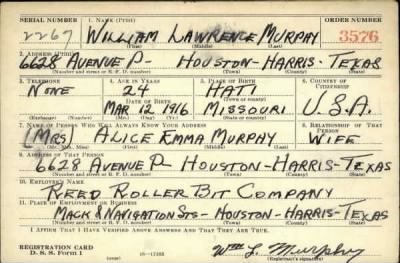 SERIAL NUMBER 1. NAME (Print) ORDER NUMBER
2267 WILLIAM LAWRENCE MURPHY 3576
(First) (Middle) (Last)
2. ADDRESS (Print)
6628 AVENUE P- HOUSTON-HARRIS-TEXAS
(Number and street or R. F. D. number) (Town) (County) (State)
3. TELEPHONE 4. AGE IN YEARS 5. PLACE OF BIRTH 6. COUNTRY OF CITIZENSHIP
NONE 24 HATI
DATE OF BIRTH (Town or county)
MAR 12 1916 MISSOURI U.S.A.
(Mo.) (Day) (Yr.) (State or country)
7. NAME OF PERSON WHO WILL ALWAYS KNOW YOUR ADDRESS 8. RELATIONSHIP OF THAT PERSON
(MRS) ALICE EMMA MURPHY WIFE
(Mr., Mrs., Miss) (First) (Middle) (Last)
9. ADDRESS OF THAT PERSON
6628 AVENUE P HOUSTON-HARRIS-TEXAS
(Number and street or R. F. D. number) (Town) (County) (State)
10. EMPLOYER'S NAME
REED ROLLER BIT COMPANY
11. PLACE OF EMPLOYMENT OR BUSINESS
MACK & NAVIGATION STS- HOUSTON-HARRIS-TEXAS
(Number and street or R. F. D. number) (Town) (County) (State)
I AFFIRM THAT I HAVE VERIFIED ABOVE ANSWERS AND THAT THEY ARE TRUE.
REGISTRATION CARD
D. S. S. Form 1 16-17105 Wm L. Murphy
(Registrant's signature)